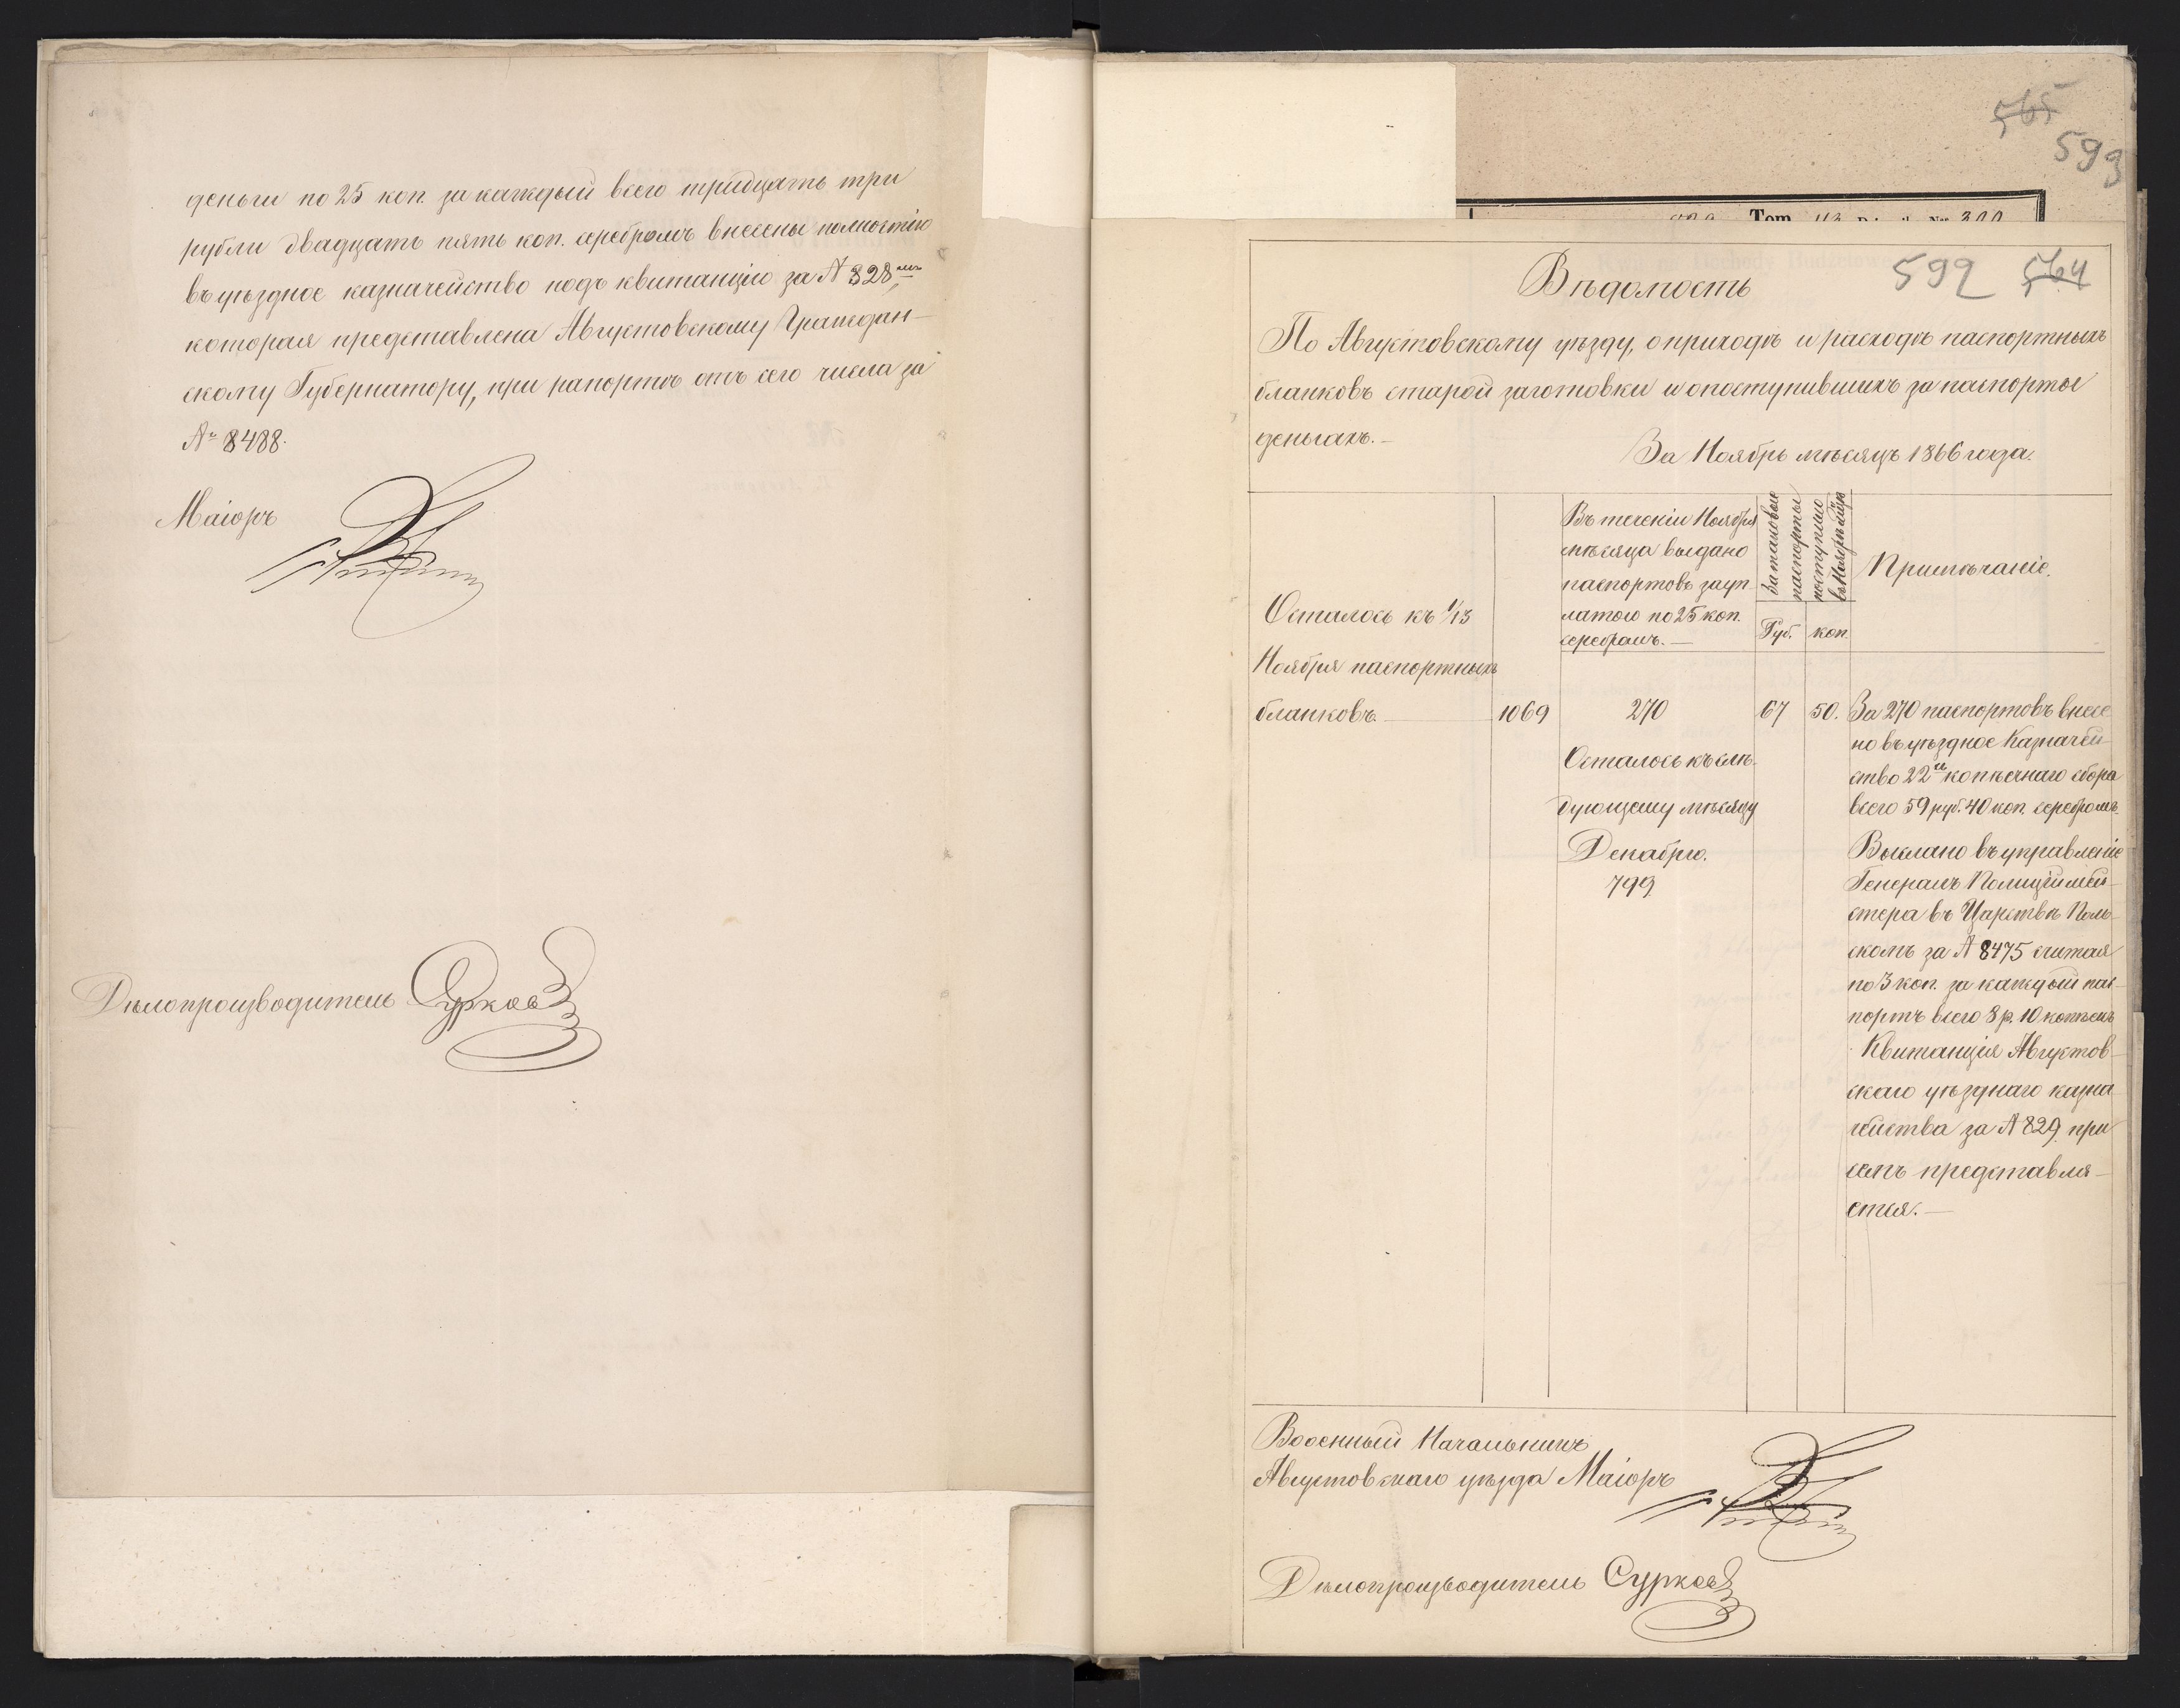 деньги по 25 коп. за каждый всего тридцать три
рубли двадцать пять коп. серебромъ внесены полностію
въ уѣздное казначейство подъ квитанцію за № 828,мъ
которая представлена Августовскому Граждан-
скому Губернатору, при рапортѣ отъ сего числа за
№ 8488.
Маіоръ
Дѣлопроизводитель Сурковъ
565
593
Tom 113 399
592 564
Вѣдомость
По Августовскому уѣзду, о приходѣ и расходѣ паспортныхъ
бланковъ старой заготовки и о поступившихъ за паспорты
деньгахъ.-
За Ноябрь мѣсяцъ 1866 года.
Осталось къ 1/13
Ноября паспортныхъ
бланковъ. 1069
Въ теченіи Ноября
мѣсяца выдано
паспортовъ за уп-
латою по 25 коп.
серебромъ.-
270
Осталось къ слѣ-
дующему мѣсяцу
Декабрю.
799
За таковые
паспорты
поступило
въ Ноябрѣ м-цѣ
Руб. коп.
67 50.
Примѣчаніе.
За 270 паспортовъ внесе
но въ уѣздное Казначей-
ство 22хъ копѣечнаго сбора
всего 59 руб. 40 коп. серебромъ.
Выслано въ управленіе
Генералъ Полиціймей-
стера въ Царствѣ Поль-
скомъ за № 8475 считая
по 3 коп. за каждый пас-
портъ всего 8 р. 10 копѣекъ
Квитанція Августов-
скаго уѣзднаго казна
чейства за № 829 при
семъ представля-
ется.-
Военный Начальникъ
Августовскаго уѣзда Маіоръ
Дѣлопроизводитель Сурковъ